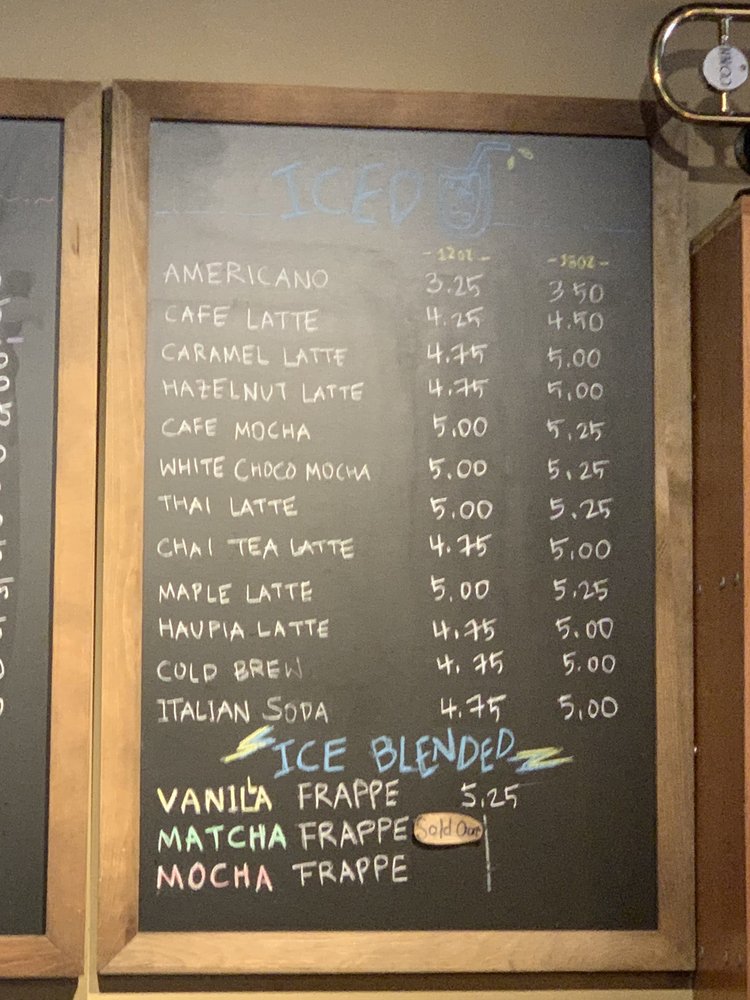 CONN
ICED
-12oz- -16oz-
AMERICANO 3.25 3.50
CAFE LATTE 4.25 4.50
CARAMEL LATTE 4.75 5.00
HAZELNUT LATTE 4.75 5.00
CAFE MOCHA 5.00 5.25
WHITE CHOCO MOCHA 5.00 5.25
THAI LATTE 5.00 5.25
CHAI TEA LATTE 4.75 5.00
MAPLE LATTE 5.00 5.25
HAUPIA LATTE 4.75 5.00
COLD BREW 4.75 5.00
ITALIAN SODA 4.75 5.00
ICE BLENDED
VANILLA FRAPPE 5.25
MATCHA FRAPPE Sold Out
MOCHA FRAPPE